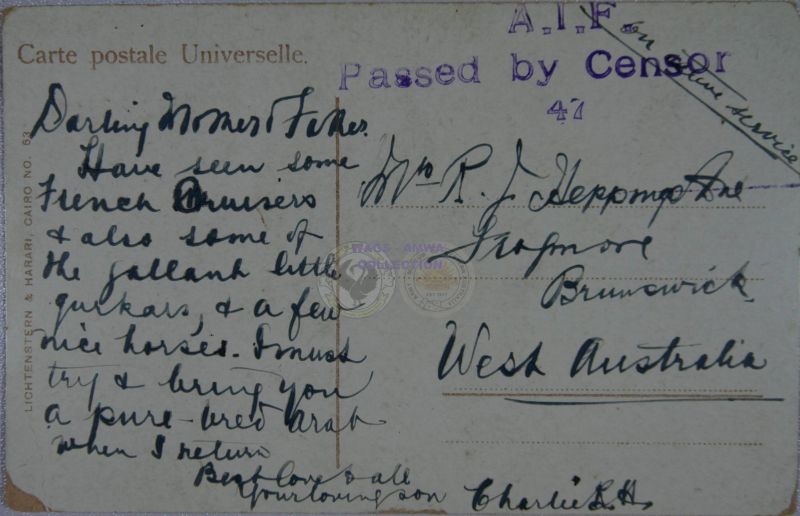 Carte postale Universelle.
A.I.F.
Passed by Censor
47
on active service
Darling Mother & Father
Have seen some
French Cruisers
& also some of
the gallant little
gurkars, & a few
nice horses. I must
try & bring you
a pure-bred arab
when I return
Best love to all
Your loving son
Charlie L.H.
Mrs R. J. Heppingstone
Frogmore
Brunswick
West Australia
LICHTENSTERN & HARARI, CAIRO NO. 63
WAGS AMWA
COLLECTION